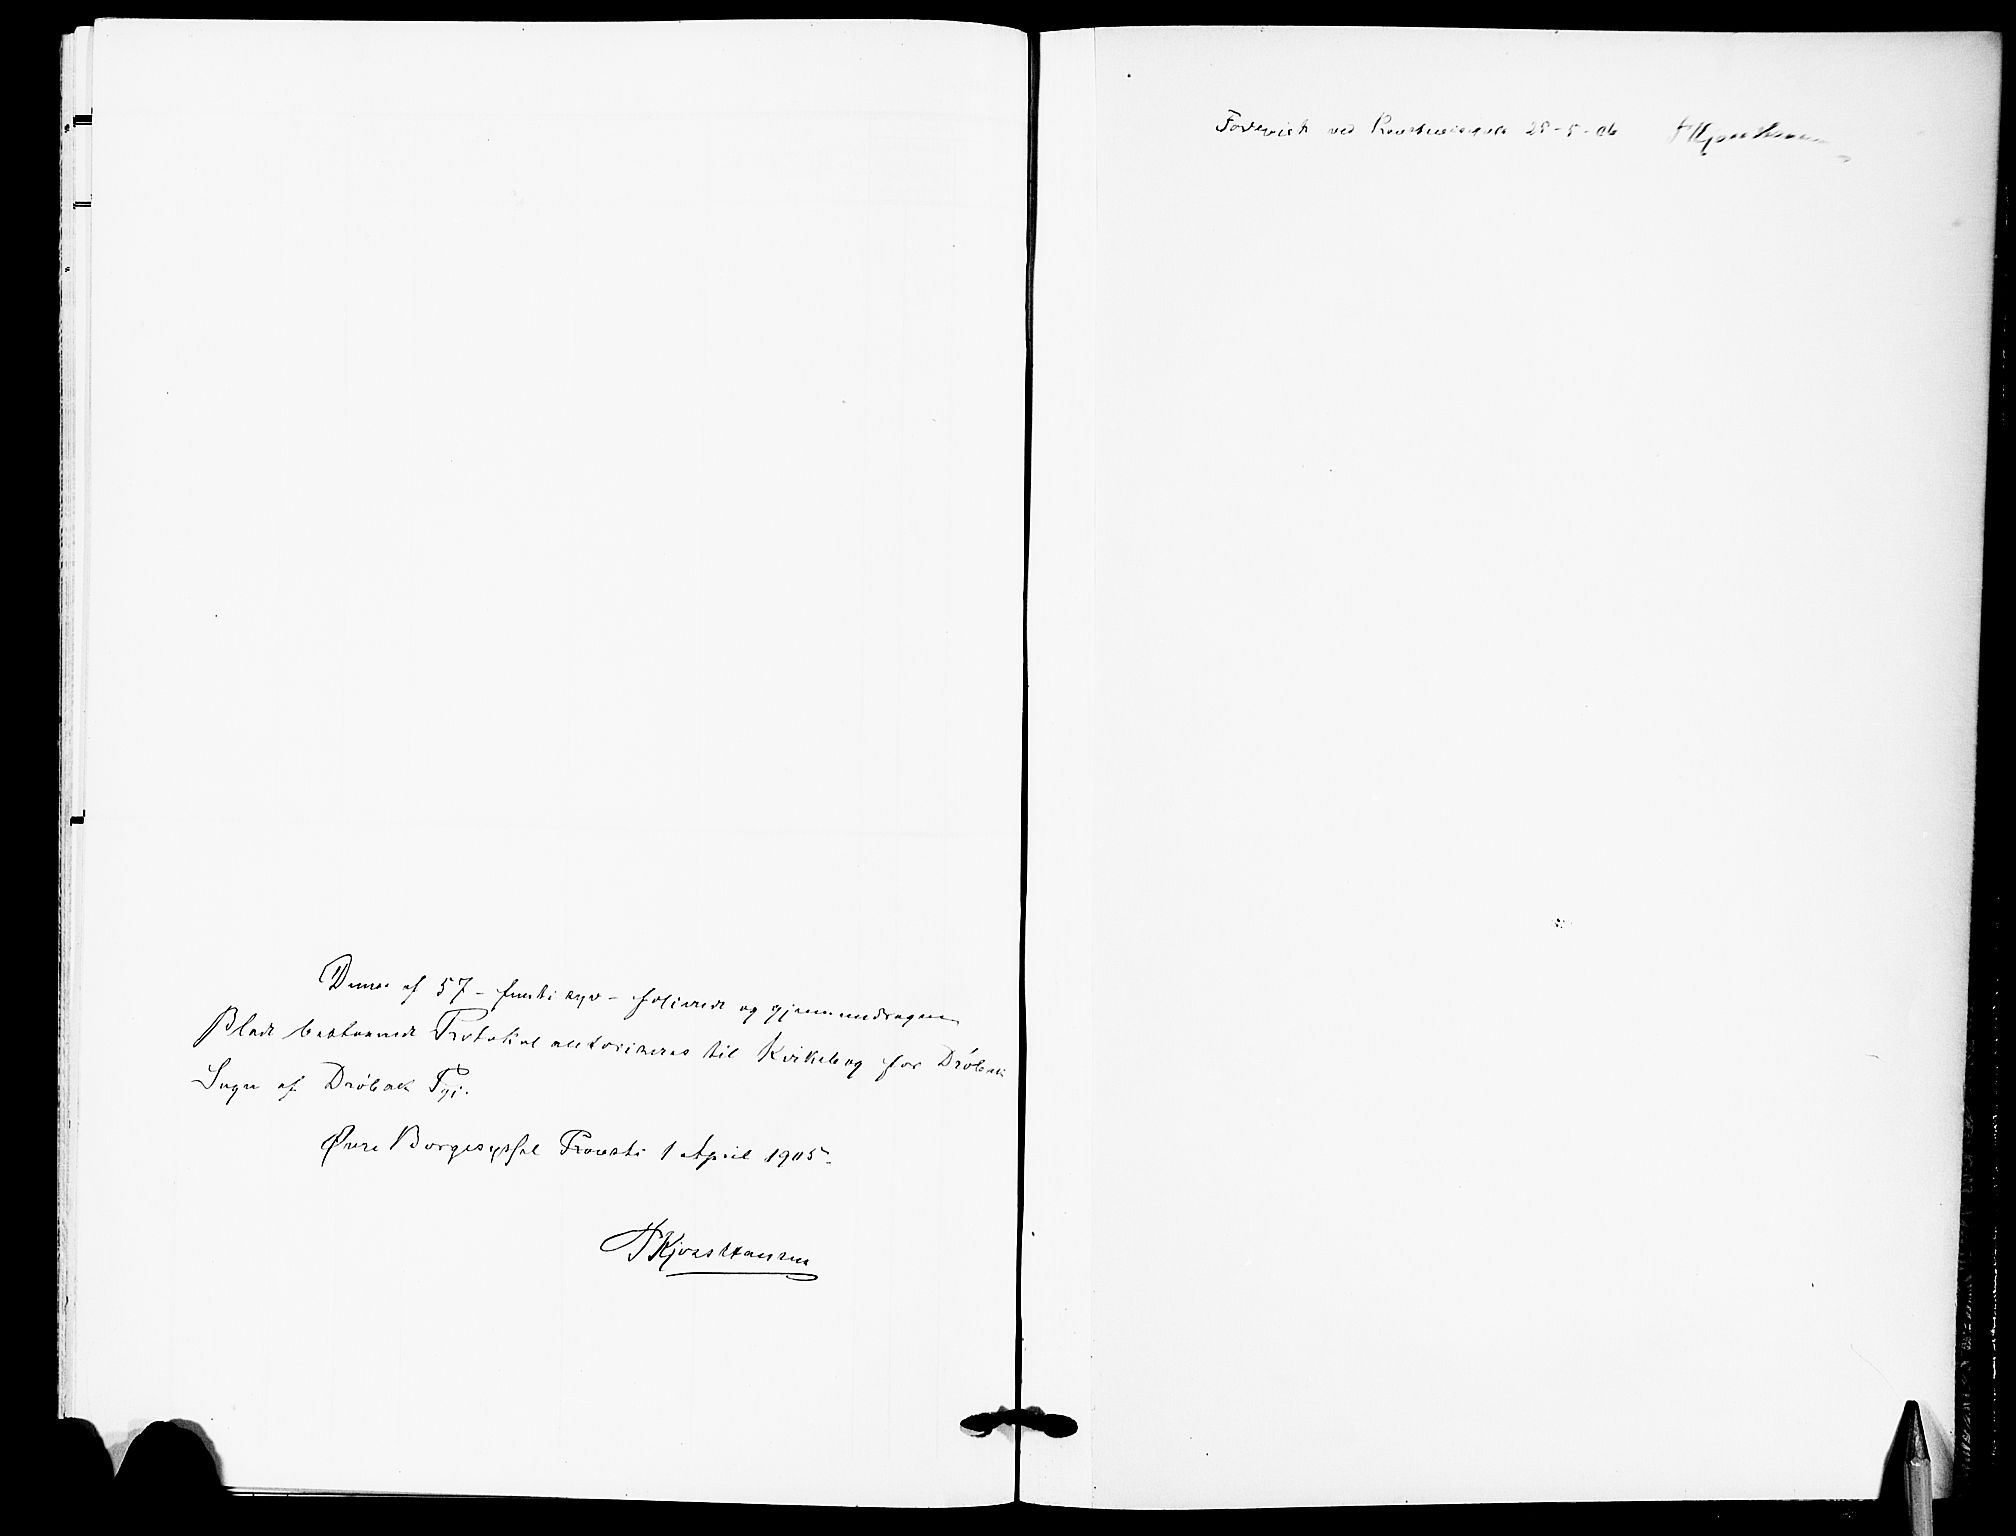 Denne af 57 - femti syv - folierede og gjennemdragne
Blade bestaaende Protokol autoriseres til Kirkebog for Drøbak
Sogn af Drøbak Pgj.
Øvre Borgesyssel Provsti 1 April 1905.
Kjos Hansen
Forevist ved 25-5-06